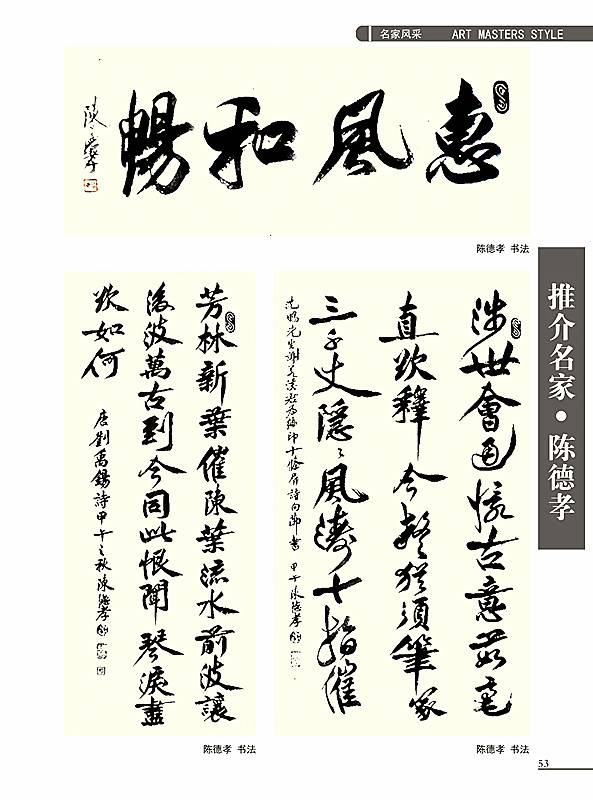 名家风采 ART MASTERS STYLE
惠風和暢
陳德孝
陈德孝 书法
推介名家·陈德孝
涉世會懷古意茹毫
直欲釋今疑猶須筆冢
三千丈隱隱風濤十指催
沈鵬先生詩 甲午陳德孝
陈德孝 书法
芳林新葉催陳葉流水前波讓
後波萬古到今同此恨聞琴淚盡
欲如何
唐劉禹錫詩甲午之秋陳德孝
陈德孝 书法
53